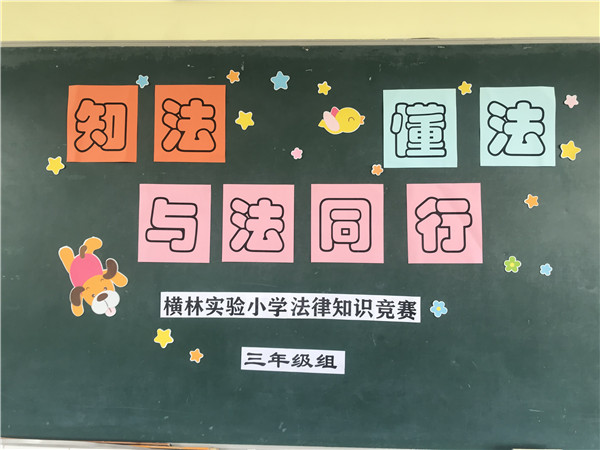 知法 懂法
与法同行
横林实验小学法律知识竞赛
三年级组